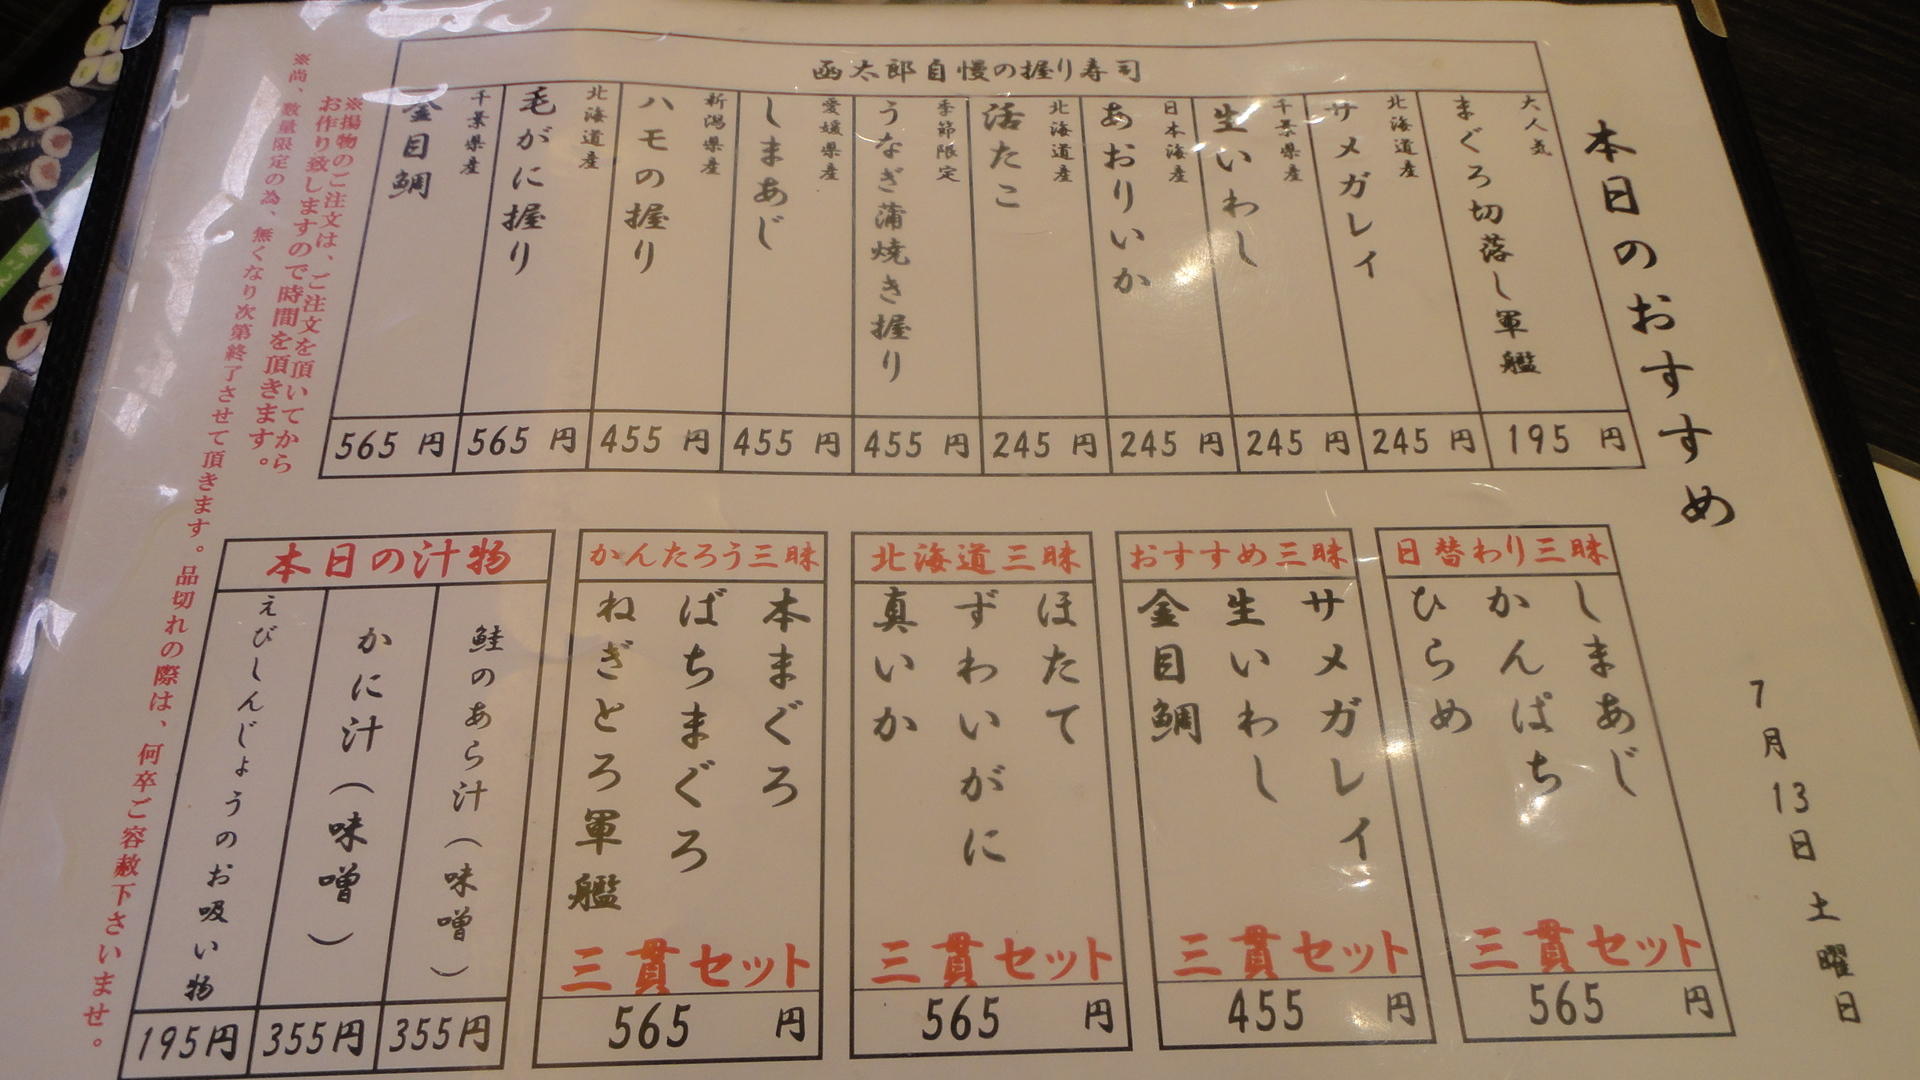 本日のおすすめ
7月13日 土曜日
函太郎自慢の握り寿司
大人気
まぐろ切落し軍艦
195 円
北海道産
サメガレイ
245 円
千葉県産
生いわし
245 円
日本海産
あおりいか
245 円
北海道産
活たこ
245 円
季節限定
うなぎ蒲焼き握り
455 円
愛媛県産
しまあじ
455 円
新潟県産
ハモの握り
455 円
北海道産
毛がに握り
565 円
千葉県産
金目鯛
565 円
※揚物のご注文は、ご注文を頂いてから
お作り致しますので時間を頂きます。
※尚、数量限定の為、無くなり次第終了させて頂きます。品切れの際は、何卒ご容赦下さいませ。
日替わり三昧
しまあじ
かんぱち
ひらめ
三貫セット
565 円
おすすめ三昧
サメガレイ
生いわし
金目鯛
三貫セット
455 円
北海道三昧
ほたて
ずわいがに
真いか
三貫セット
565 円
かんたろう三昧
本まぐろ
ばちまぐろ
ねぎとろ軍艦
三貫セット
565 円
本日の汁物
鮭のあら汁(味噌)
355円
かに汁(味噌)
355円
えびしんじょうのお吸い物
195円